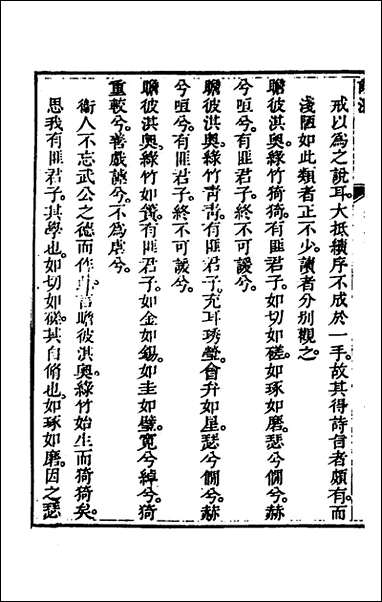 戒以為之說耳。大抵續序不成於一手。故其得詩旨者頗有。而
淺陋如此類者正不少。讀者分別觀之。
瞻彼淇奧。綠竹猗猗。有匪君子。如切如磋。如琢如磨。瑟兮僩兮。赫
兮咺兮。有匪君子。終不可諼兮。
瞻彼淇奧。綠竹青青。有匪君子。充耳琇瑩。會弁如星。瑟兮僩兮。赫
兮咺兮。有匪君子。終不可諼兮。
瞻彼淇奧。綠竹如簀。有匪君子。如金如錫。如圭如璧。寬兮綽兮。猗
重較兮。善戲謔兮。不為虐兮。
衞人不忘武公之德而作。言瞻彼淇奧。綠竹始生而猗猗矣。
思我有匪君子。其學也。如切如磋。其自脩也。如琢如磨。因之瑟